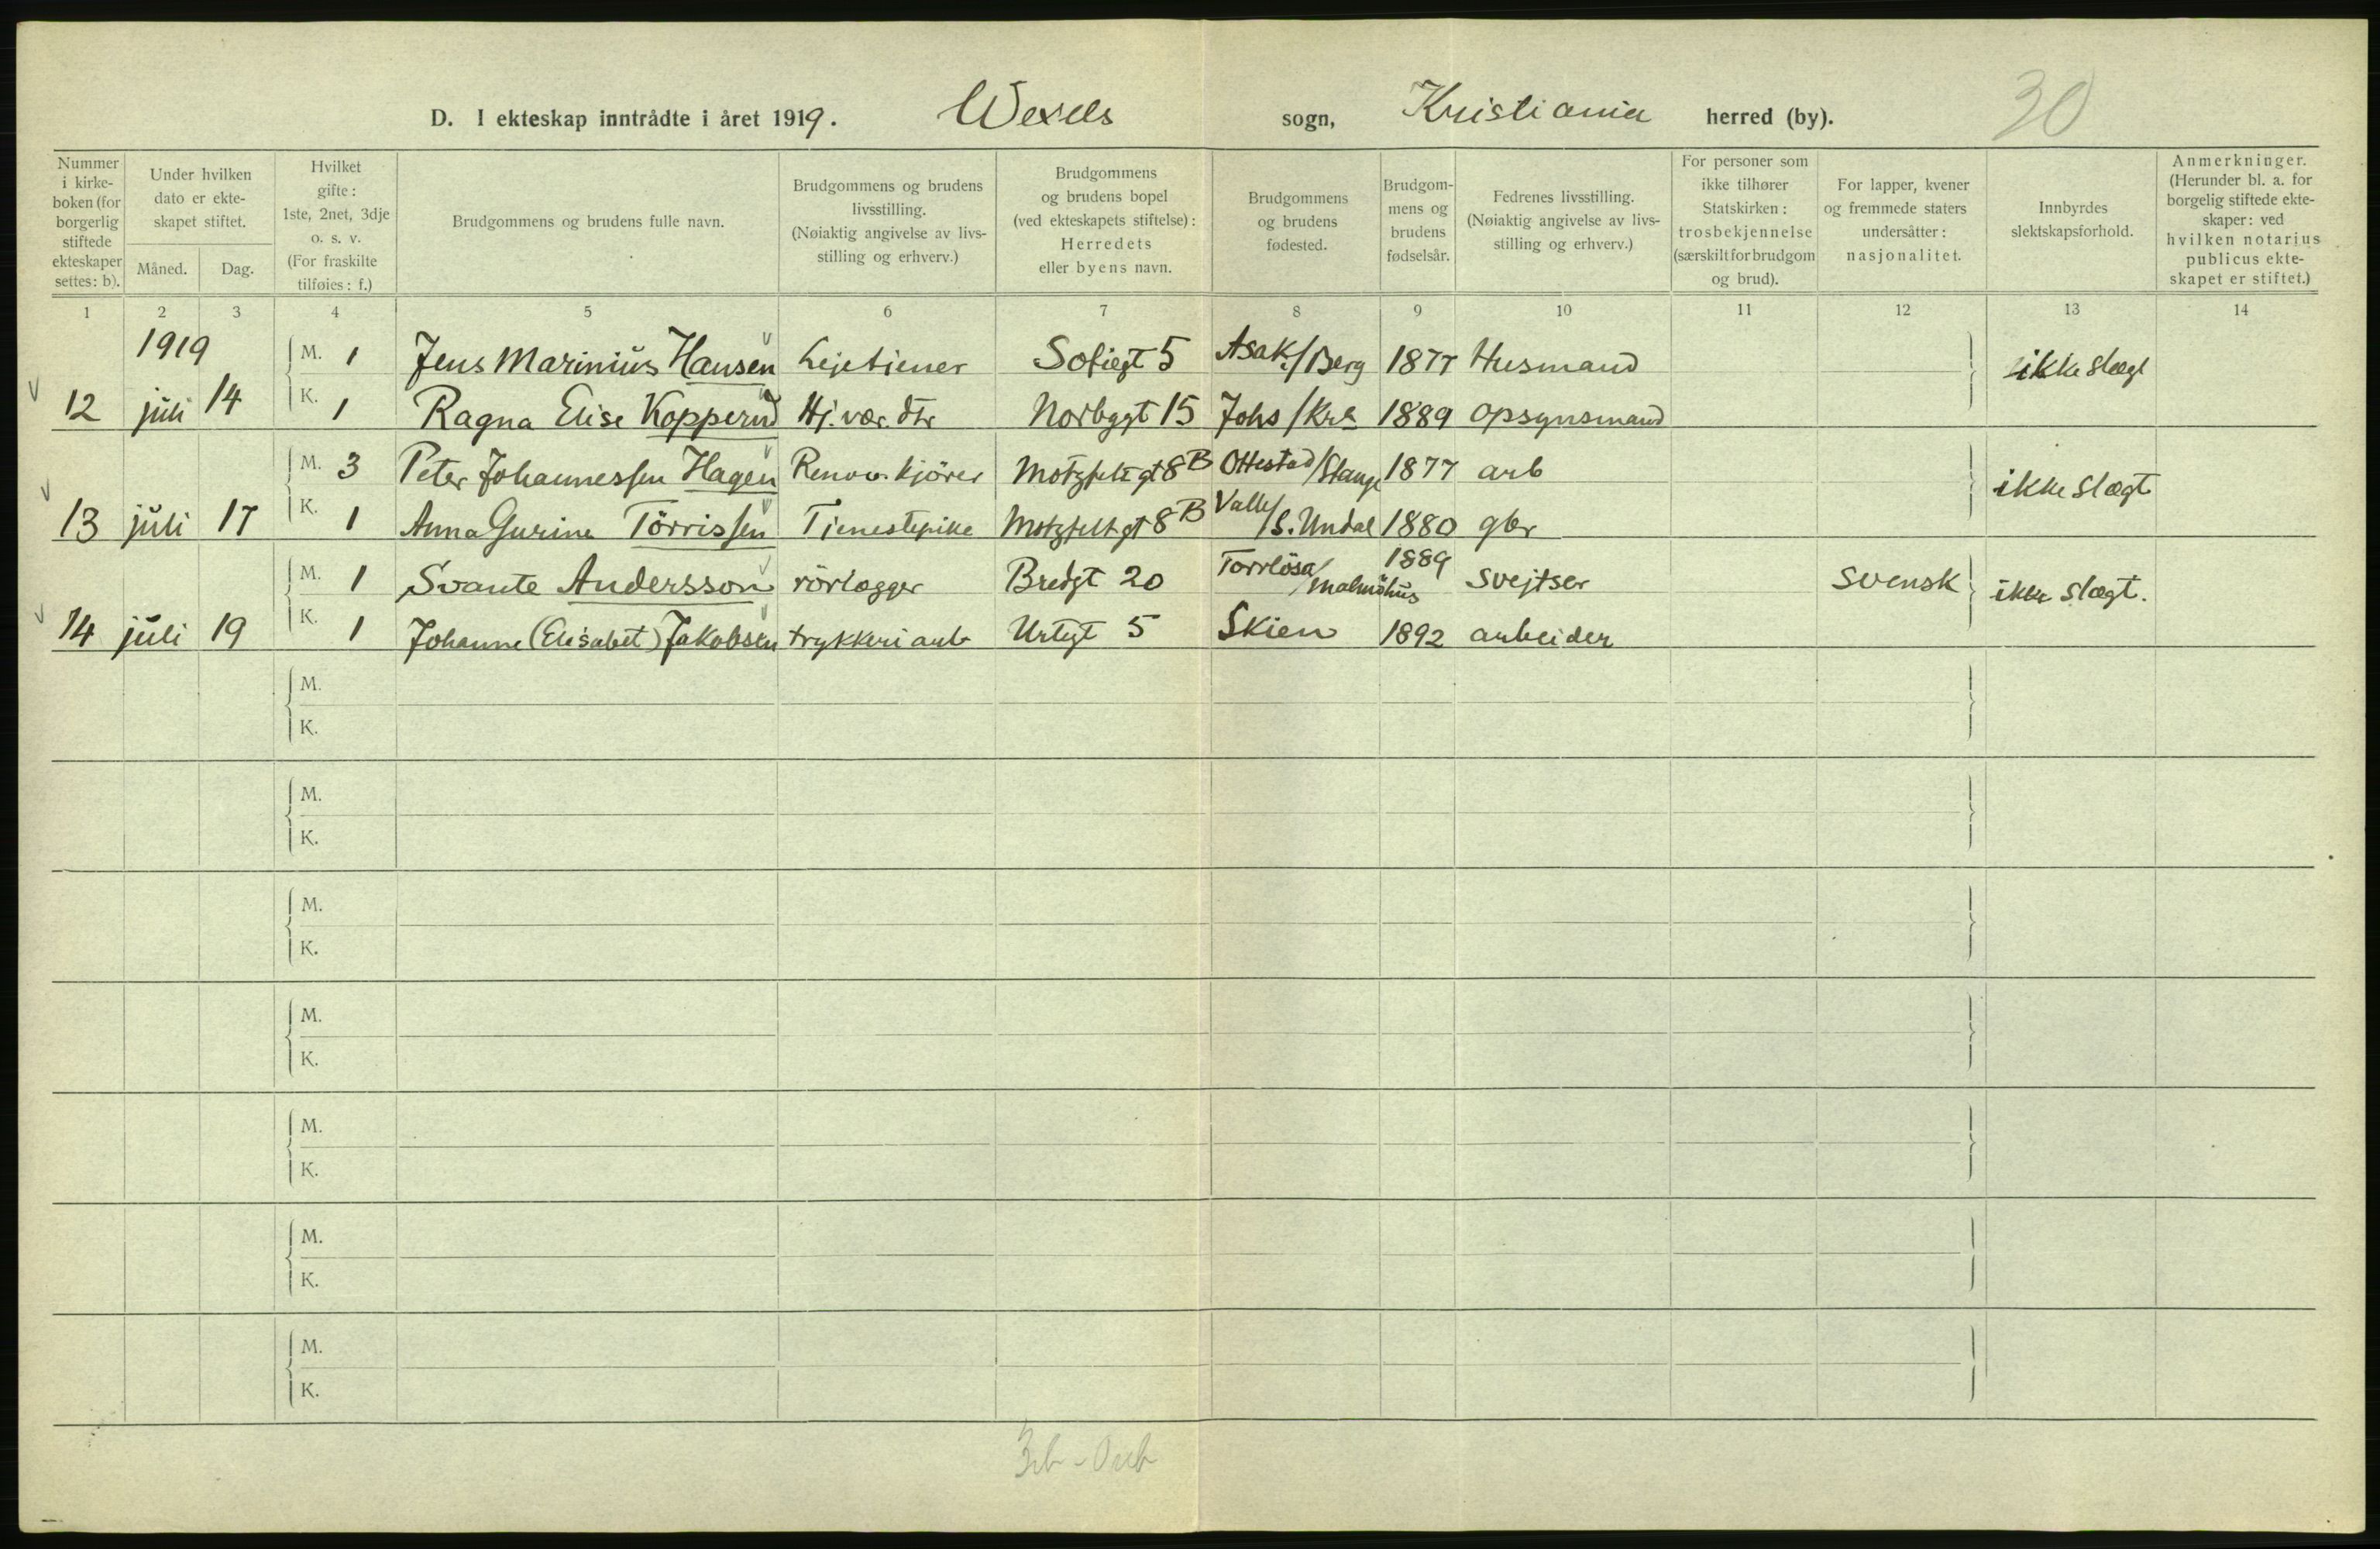 D. I ekteskap inntrådte i året 1919. Wexels sogn, Kristiania herred (by). 30
Nummer i kirke-boken (for borgerlig stiftede ekteskaper settes: b).
Under hvilken dato er ekte-skapet stiftet.
Måned. Dag.
Hvilket gifte: 1ste, 2net, 3dje o. s. v. (For fraskilte tilføies: f.)
Brudgommens og brudens fulle navn.
Brudgommens og brudens livsstilling. (Nøiaktig angivelse av livs-stilling og erhverv.)
Brudgommens og brudens bopel (ved ekteskapets stiftelse): Herredets eller byens navn.
Brudgommens og brudens fødested.
Brudgom-mens og brudens fødselsår.
Fedrenes livsstilling. (Nøiaktig angivelse av livs-stilling og erhverv.)
For personer som ikke tilhører Statskirken: trosbekjennelse (særskilt for brudgom og brud).
For lapper, kvener og fremmede staters undersåtter: nasjonalitet.
Innbyrdes slektskapsforhold.
Anmerkninger. (Herunder bl. a. for borgelig stiftede ekte-skaper: ved hvilken notarius publicus ekte-skapet er stiftet.)
1 2 3 4 5 6 7 8 9 10 11 12 13 14
1919 M. 1 Jens Marinius Hansen Lejetiener Sofiegt 5 Asak/Berg 1877 Husmand ikke slægt
12 juli 14 K. 1 Ragna Elise Kopperud Hj. vær. dtr Norbygt 15 Johs/Kra 1889 opsynsmand
M. 3 Peter Johannessen Hagen Renov. kjörer Motzfeldtgt 8B Ottestad/Stange 1877 arb ikke slægt
13 juli 17 K. 1 Anna Gurine Törrissen Tjenestepike Motzfeldtgt 8B Valle/S. Undal 1880 gbr
M. 1 Svante Andersson rörlægger Bredgt 20 Torrlösa/Malmöhus 1889 svejtser svensk ikke slægt.
14 juli 19 K. 1 Johanne (Elisabet) Jakobsen trykkeriarb Urtegt 5 Skien 1892 arbeider
M.
K.
M.
K.
M.
K.
M.
K.
M.
K.
M.
K.
M.
K.